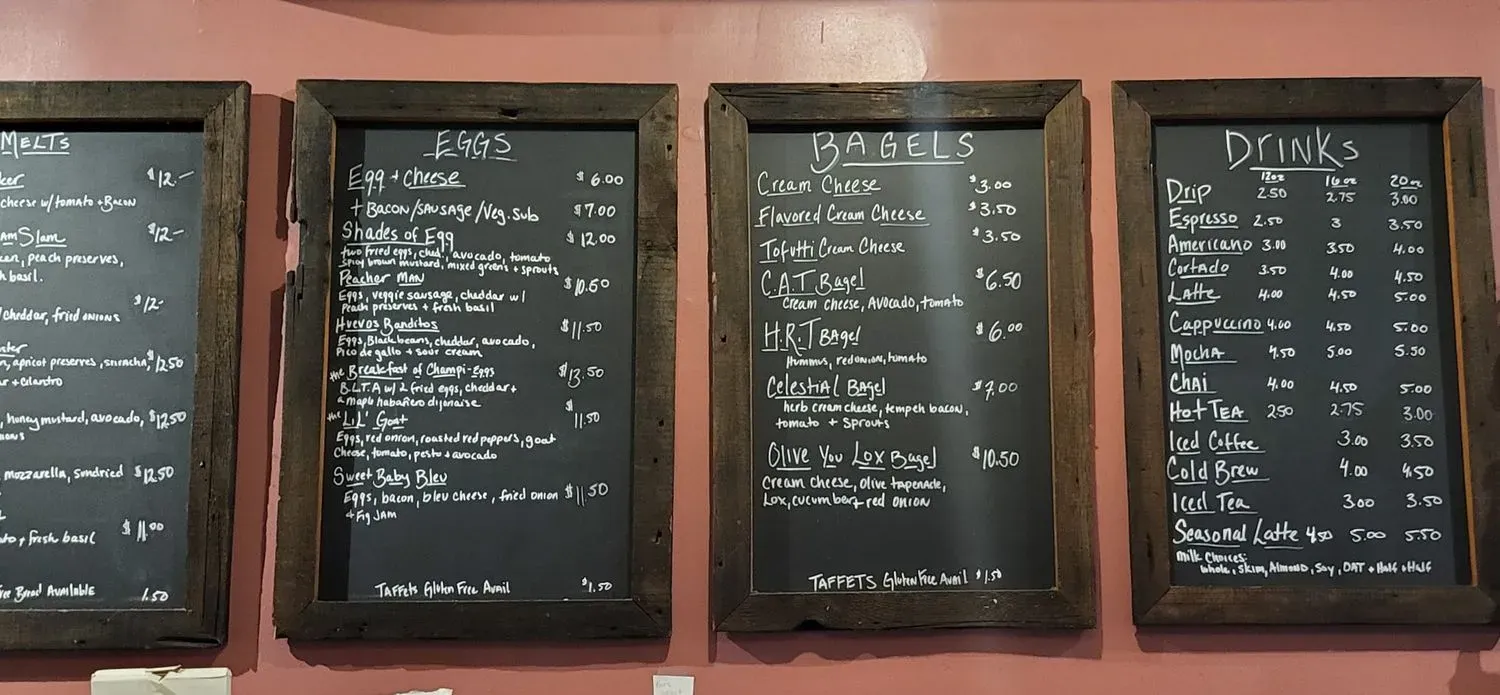 MELTS
$12.-
cheese w/tomato + BACON
Slam $12-
peach preserves,
basil.
$12-
cheddar, fried onions
apricot preserves, sriracha, $12.50
+ cilantro
honey mustard, avocado, $12.50
mozzarella, sundried $12.50
$11.00
+ fresh basil
Bread Available 1.50
EGGS
Egg + cheese $6.00
+ BACON/SAUSAGE/Veg. Sub $7.00
Shades of Egg $12.00
two fried eggs, ched., avocado, tomato
spicy brown mustard, mixed greens + sprouts
Peacher MAN $10.50
Eggs, veggie sausage, cheddar w/
Peach preserves + fresh basil
Huevos Banditos $11.50
Eggs, Black beans, cheddar, avocado,
Pico de gallo + sour cream
the Breakfast of Champi-Eggs $13.50
B.L.T.A w/ 2 fried eggs, cheddar +
a maple habañero dijonaise
the LiL' Goat $11.50
Eggs, red onion, roasted red peppers, goat
Cheese, tomato, pesto + avocado
Sweet Baby Bleu
Eggs, bacon, bleu cheese, fried onion $11.50
+ Fig JAM
TAFFETS Gluten Free Avail $1.50
BAGELS
Cream Cheese $3.00
Flavored Cream Cheese $3.50
Tofutti Cream Cheese $3.50
C.A.T Bagel $6.50
Cream cheese, Avocado, tomato
H.R.T Bagel $6.00
Hummus, red onion, tomato
Celestial Bagel $7.00
herb cream cheese, tempeh bacon,
tomato + Sprouts
Olive You Lox Bagel $10.50
Cream cheese, Olive tapenade,
Lox, cucumber + red onion
TAFFETS Gluten Free Avail $1.50
DRINKS
12oz 16oz 20oz
Drip 2.50 2.75 3.00
Espresso 2.50 3 3.50
Americano 3.00 3.50 4.00
Cortado 3.50 4.00 4.50
Latte 4.00 4.50 5.00
Cappuccino 4.00 4.50 5.00
Mocha 4.50 5.00 5.50
Chai 4.00 4.50 5.00
Hot TEA 2.50 2.75 3.00
Iced Coffee 3.00 3.50
Cold Brew 4.00 4.50
Iced Tea 3.00 3.50
Seasonal Latte 4.50 5.00 5.50
Milk Choices:
Whole, Skim, Almond, Soy, OAT + Half + Half